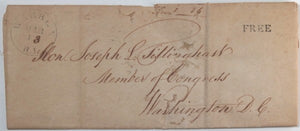 FREE
Hon. Joseph L. Tillinghast
Member of Congress
Washington D. C.